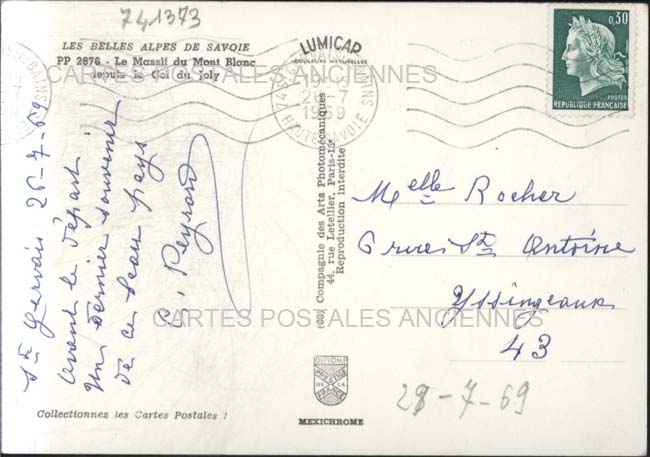 741373
LES BELLES ALPES DE SAVOIE
PP 2676 - Le Massif du Mont Blanc
depuis le Col du Joly
LUMICAP
COULEURS NATURELLES
0,30
POSTES
RÉPUBLIQUE FRANÇAISE
26-7
1969
HAUTE SAVOIE
CARTES POSTALES ANCIENNES
St Gervais 26-7-69
Avant le départ
Un dernier souvenir
de ce beau pays
C. Peyrard
(633) Compagnie des Arts Photomécaniques
44, rue Letellier, Paris-15e
Reproduction interdite
Melle Rocher
6 rue St Antoine
Yssingeaux
43
CARTES POSTALES ANCIENNES
DIPLOME
PRESTIGE
DE LA
FRANCE
MEXICHROME
28-7-69
Collectionnez les Cartes Postales !